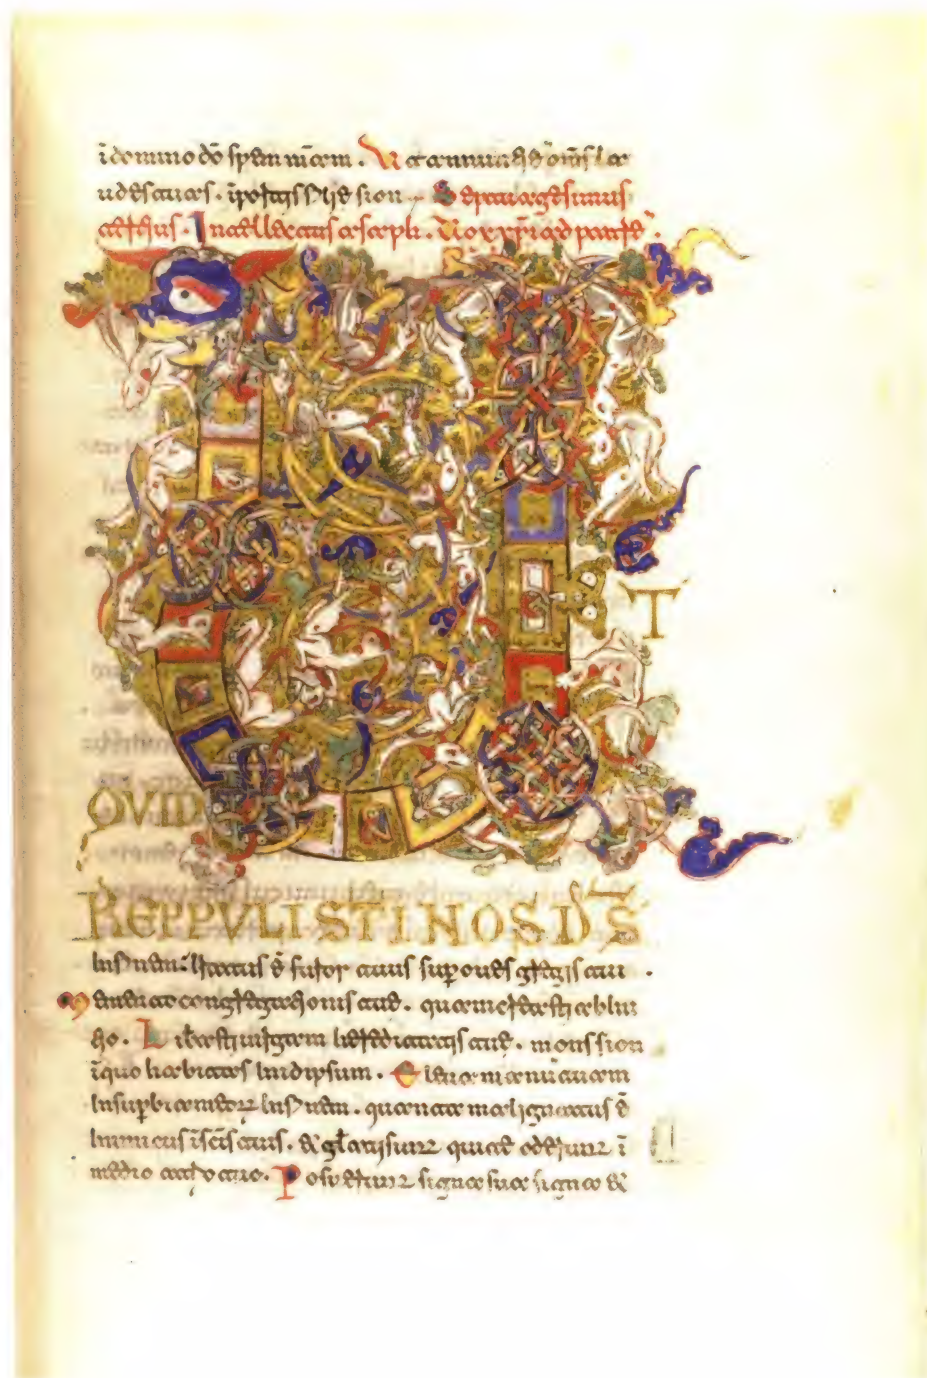 ī domino dō spem meam . Ut annuntiē om̄s lau
udes tuas . ī portis filie sion . Septuagesimus
tertius . Intellectus asaph . Vox xp̄i ad patrē .
U T
QUID
REPPULISTI NOS D̄S
in finem : Iratus ē furor tuus sup oues gregis tui .
Memento congregationis tue . quam creasti ab ini
tio . Liberasti uirgam hereditatis tue . mons sion
ī quo habitas in idipsum . Eleua manū tuam
in supbiam eorum in finem . quanta malignatus ē
inimicus ī scīs tuis . & gloriati sunt qui te oderunt ī
medio atrio tuo . Posuerunt signa sua signa &